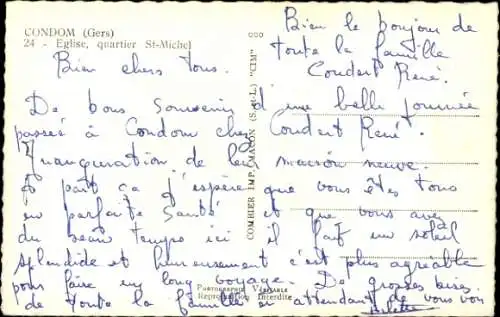 CONDOM (Gers)
24 - Eglise, quartier St-Michel
Bien le bonjour de
toute la famille
Condert René.
Bien chers tous.
De bons souvenirs d'une belle journée
passée à Condom chez Condert René.
Inauguration de leur maison neuve.
A part ça j'espère que vous êtes tous
en parfaite santé et que vous avez
du beau temps ici il fait un soleil
splendide et heureusement c'est plus agréable
pour faire un long voyage. De grosses bises
de toute la famille en attendant de vous voir
Arlette
COMBIER IMP. MACON (S.-et-L.) "CIM"
PHOTOGRAPHIE VÉRITABLE
Reproduction Interdite